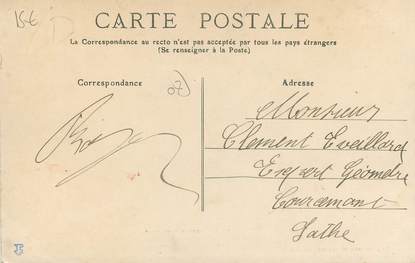 15€
CARTE POSTALE
La Correspondance au recto n'est pas acceptée par tous les pays étrangers
(Se renseigner à la Poste)
Correspondance
Adresse
07
Monsieur
Clement Eveillard
Expert Géomdre
Courcemont
Sathe